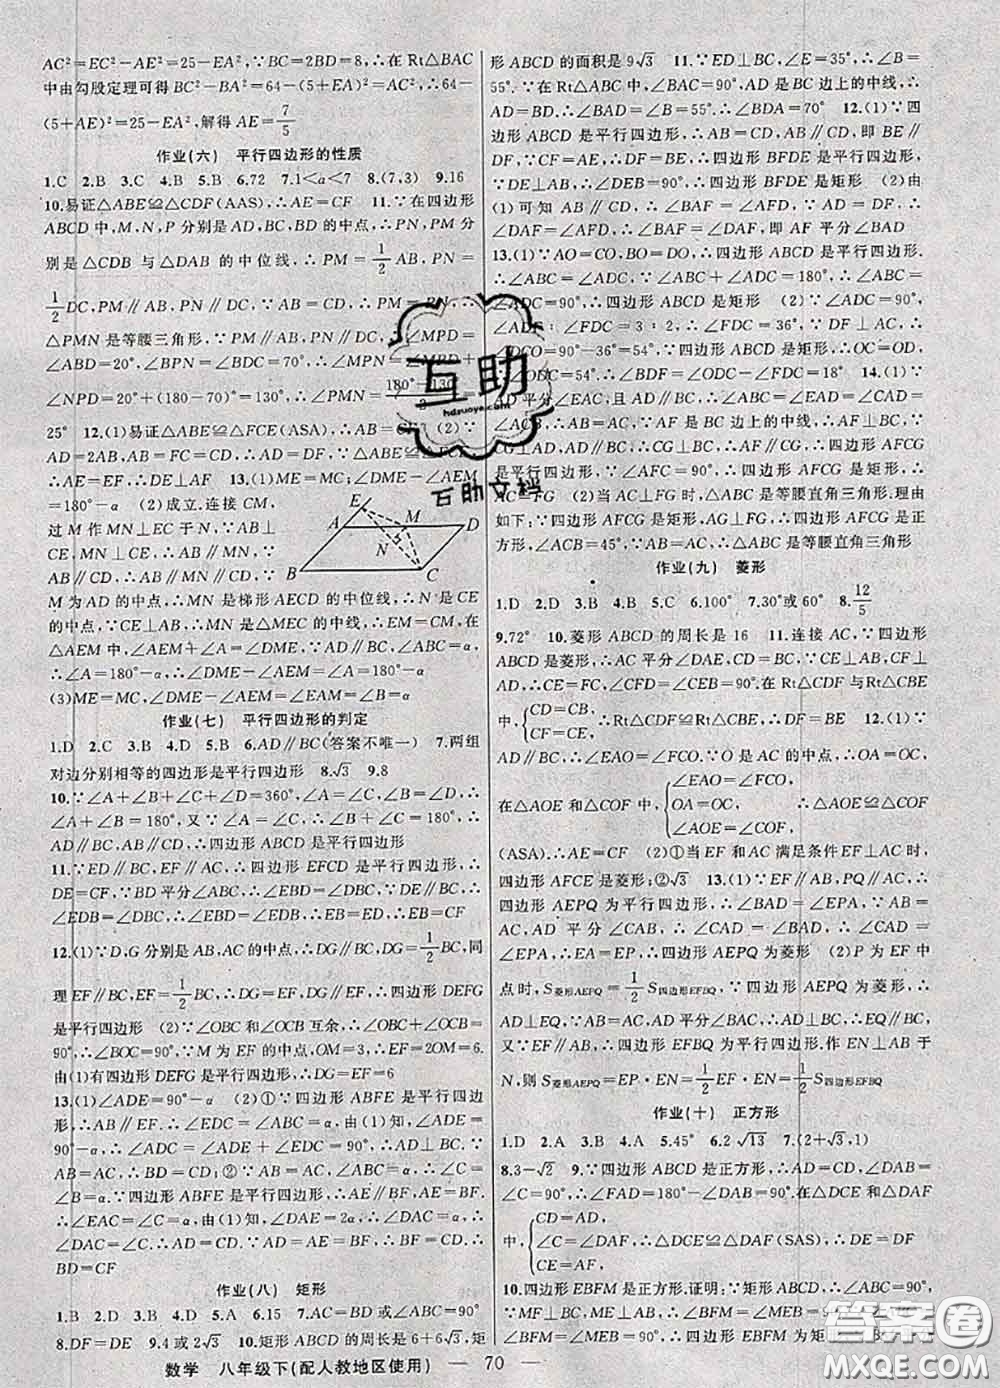 AC²=EC²-AE²=25-EA²,∵BC=2BD=8,∴在 Rt△BAC
中由勾股定理可得 BC²-BA²=64-(5+EA)²=AC²,∴64-
(5+AE)²=25-EA²,解得 AE=7/5
作业(六) 平行四边形的性质
1.C 2.B 3.C 4.B 5.B 6.72 7.1<a<7 8.(7,3) 9.16
10.易证△ABE≌△CDF(AAS),∴AE=CF 11.∵在四边形
ABCD 中,M、N、P 分别是 AD,BC,BD 的中点,∴PN,PM 分
别是△CDB 与△DAB 的中位线,∴PM=1/2AB,PN=
1/2DC,PM∥AB,PN∥DC,∵AB=CD,∴PM=PN,∴
△PMN 是等腰三角形,∵PM∥AB,PN∥DC,∴∠MPD=
∠ABD=20°,∠BPN=∠BDC=70°,∴∠MPN=∠MPD+
∠NPD=20°+(180-70)°=130°,∴∠PMN=180°-130°/2=
25° 12.(1)易证△ABE≌△FCE(ASA),∴AB=CF (2)∵
AD=2AB,AB=FC=CD,∴AD=DF,∵△ABE≌△FCE,
∴AE=EF,∴DE⊥AF 13.(1)ME=MC;∠DME-∠AEM
=180°-α (2)成立.连接 CM,
过 M 作 MN⊥EC 于 N,∵AB⊥
CE,MN⊥CE,∴AB∥MN,∵
AB∥CD,∴AB∥MN∥CD,∵
M 为 AD 的中点,∴MN 是梯形 AECD 的中位线,∴N 是 CE
的中点,∵CE⊥AB,∴MN 是△MEC 的中线,∴EM=CM.在
△AEM 中,∵∠A=∠DME-∠AEM,∠A=180°-α
∴∠A=180°-α,∴∠DME-∠AEM=∠A=180°-α
(3)ME=MC,∠DME-∠AEM=∠AEM=180°-α
作业(七) 平行四边形的判定
1.D 2.C 3.B 4.D 5.B 6.AD∥BC(答案不唯一) 7.两组
对边分别相等的四边形是平行四边形 8.√3 9.8
10.∵∠A+∠B+∠C+∠D=360°,∠A=∠C,∠B=∠D,∴
∠A+∠B=180°,又∵∠A=∠C,∴∠B+∠C=180°,∴
AD∥BC,AB∥CD,∴四边形 ABCD 是平行四边形
11.∵ED∥BC,EF∥AC,∴四边形 EFCD 是平行四边形,∴
DE=CF,∵BD 平分∠ABC,∴∠EBD=∠DBC,∵DE∥BC,
∴∠EDB=∠DBC,∴∠EBD=∠EDB,∴EB=ED,∴EB=CF
12.(1)∵D,G 分别是 AB,AC 的中点,∴DG∥BC,DG=1/2BC,同
理 EF∥BC,EF=1/2BC,∴DG=EF,DG∥EF,∴四边形 DEFG
是平行四边形 (2)∵∠OBC 和∠OCB 互余,∴∠OBC+∠OCB=
90°,∴∠BOC=90°,∵M 为 EF 的中点,OM=3,∴EF=2OM=6.
由(1)有四边形 DEFG 是平行四边形,∴DG=EF=6
13.(1)∠ADE=90°-α (2)①∵四边形 ABFE 是平行四边
形,∴AB∥EF,∴∠EFC=∠ABC=α,由(1)知,∠ADE=
90°-α,∴∠ADC=∠ADE+∠EDC=90°,∴AD⊥BC.∵
AB=AC,∴BD=CD;②∵AB=AC,∠ABC=α,∴∠C=
∠B=α.∵四边形 ABFE 是平行四边形,∴AE∥BF,AE=BF,∴
∠EAC=∠C=α,由(1)知,∠DAE=2α,∴∠DAC=α,∴
∠DAC=∠C,∴AD=CD.∵AD=AE=BF,∴BF=CD,∴
BD=CF
作业(八) 矩形
1.B 2.D 3.B 4.D 5.A 6.15 7.AC=BD 或∠ABC=90°
8.DF=DE 9.4 或 2√3 10.矩形 ABCD 的周长是 6+6√3,矩
形 ABCD 的面积是 9√3 11.∵ED⊥BC,∠E=35°,∴∠B=
55°.在 Rt△ABC 中,∠BAC=90°,AD 是 BC 边上的中线,∴
AD=BD=DC,∴∠B=∠BAD=55°,∴∠BDA=70° 12.(1)∵四
边形 ABCD 是平行四边形,∴AB∥CD,即 BE∥
DF,∵CF=AE,∴DF=BE,∴四边形 BFDE 是平行四边形,
∵DE⊥AB,∴∠DEB=90°,∴四边形 BFDE 是矩形 (2)由
(1)可知 AB∥CD,∴∠BAF=∠AFD,∵AD=DF,∴
∠DAF=∠AFD,∴∠BAF=∠DAF,即 AF 平分∠BAD
13.(1)∵AO=CO,BO=DO,∴四边形 ABCD 是平行四边形,
∴∠ABC=∠ADC,∵∠ABC+∠ADC=180°,∴∠ABC=
∠ADC=90°,∴四边形 ABCD 是矩形 (2)∵∠ADC=90°,
∠ADF:∠FDC=3:2,∴∠FDC=36°,∵DF⊥AC,∴
∠DCO=90°-36°=54°,∵四边形 ABCD 是矩形,∴OC=OD,
∴∠ODC=54°,∴∠BDF=∠ODC-∠FDC=18° 14.(1)∵
AD 平分∠EAC,且 AD∥BC,∴∠ABC=∠EAD=∠CAD=
∠ACB,∴AB=AC.∵AF 是 BC 边上的中线,∴AF⊥BC,
∵CG⊥AD,AD∥BC,∴CG⊥BC,∴AF∥CG,∴四边形 AFCG 是
平行四边形,∵∠AFC=90°,∴四边形 AFCG 是矩形,∴
AC=FG (2)当 AF=CF 时,△ABC 是等腰直角三角形.理由
如下:∵四边形 AFCG 是矩形,AG⊥FG,∴四边形 AFCG 是正
方形,∠ACB=45°,∵AB=AC,∴△ABC 是等腰直角三角形
作业(九) 菱形
1.D 2.D 3.B 4.B 5.C 6.100° 7.30°或 60° 8.12/5
9.72° 10.菱形 ABCD 的周长是 16 11.连接 AC,∵四边形
ABCD 是菱形,∴AC 平分∠DAE,CD=BC,∵CE⊥AB,CF⊥
AD,∴CE=FC,∠CFD=∠CEB=90°.在 Rt△CDF 与 Rt△CBE
中,{CD=CB,CF=CE,∴Rt△CDF≌Rt△CBE,∴DF=BE 12.(1)∵
AE∥CF,∴∠EAO=∠FCO,∵O 是 AC 的中点,∴OA=OC,
在△AOE 和△COF 中,{∠EAO=∠FCO,OA=OC,∠AOE=∠COF,∴△AOE≌△COF
(ASA).∴AE=CF (2)①当 EF 和 AC 满足条件 EF⊥AC 时,
四边形 AFCE 是菱形;②√3 13.(1)∵EF∥AB,PQ∥AC,
∴四边形 AEPQ 为平行四边形,∴∠BAD=∠EPA,∵AB=
AC,AD 平分∠CAB,∴∠CAD=∠BAD,∴∠CAD=
∠EPA,∴EA=EP,∴四边形 AEPQ 为菱形 (2)P 为 EF 中
点时,S菱形AEPQ=1/2S四边形EFBQ,∵四边形 AEPQ 为菱形,∴
AD⊥EQ,∵AB=AC,AD 平分∠BAC,∴AD⊥BC,∴EQ∥BC,
又∵EF∥AB,∴四边形 EFBQ 为平行四边形.作 EN⊥AB 于
N,则 S菱形AEPQ=EP·EN=1/2EF·EN=1/2S四边形EFBQ
作业(十) 正方形
1.D 2.A 3.B 4.A 5.45° 6.2√13 7.(2+√3,1)
8.3-√2 9.∵四边形 ABCD 是正方形,∴∠DAB=∠C=
90°,∴∠FAD=180°-∠DAB=90°.在△DCE 和△DAF
中,{CD=AD,∠C=∠DAF,CE=AF,∴△DCE≌△DAF(SAS),∴DE=DF
10.四边形 EBFM 是正方形.证明:∵矩形 ABCD,∴∠ABC=90°,
∵MF⊥BC,ME⊥AB,∴∠BEM=90°,∠BFM=90°,∴
∠BFM=∠ABC=∠BEM=90°,∴四边形 EBFM 为矩形,∵矩形
数学 八年级下(配人教地区使用) — 70 —
互助
hdzuoye.com
互助文档
答案圈
MXQE.COM
A
B
C
D
E
M
N